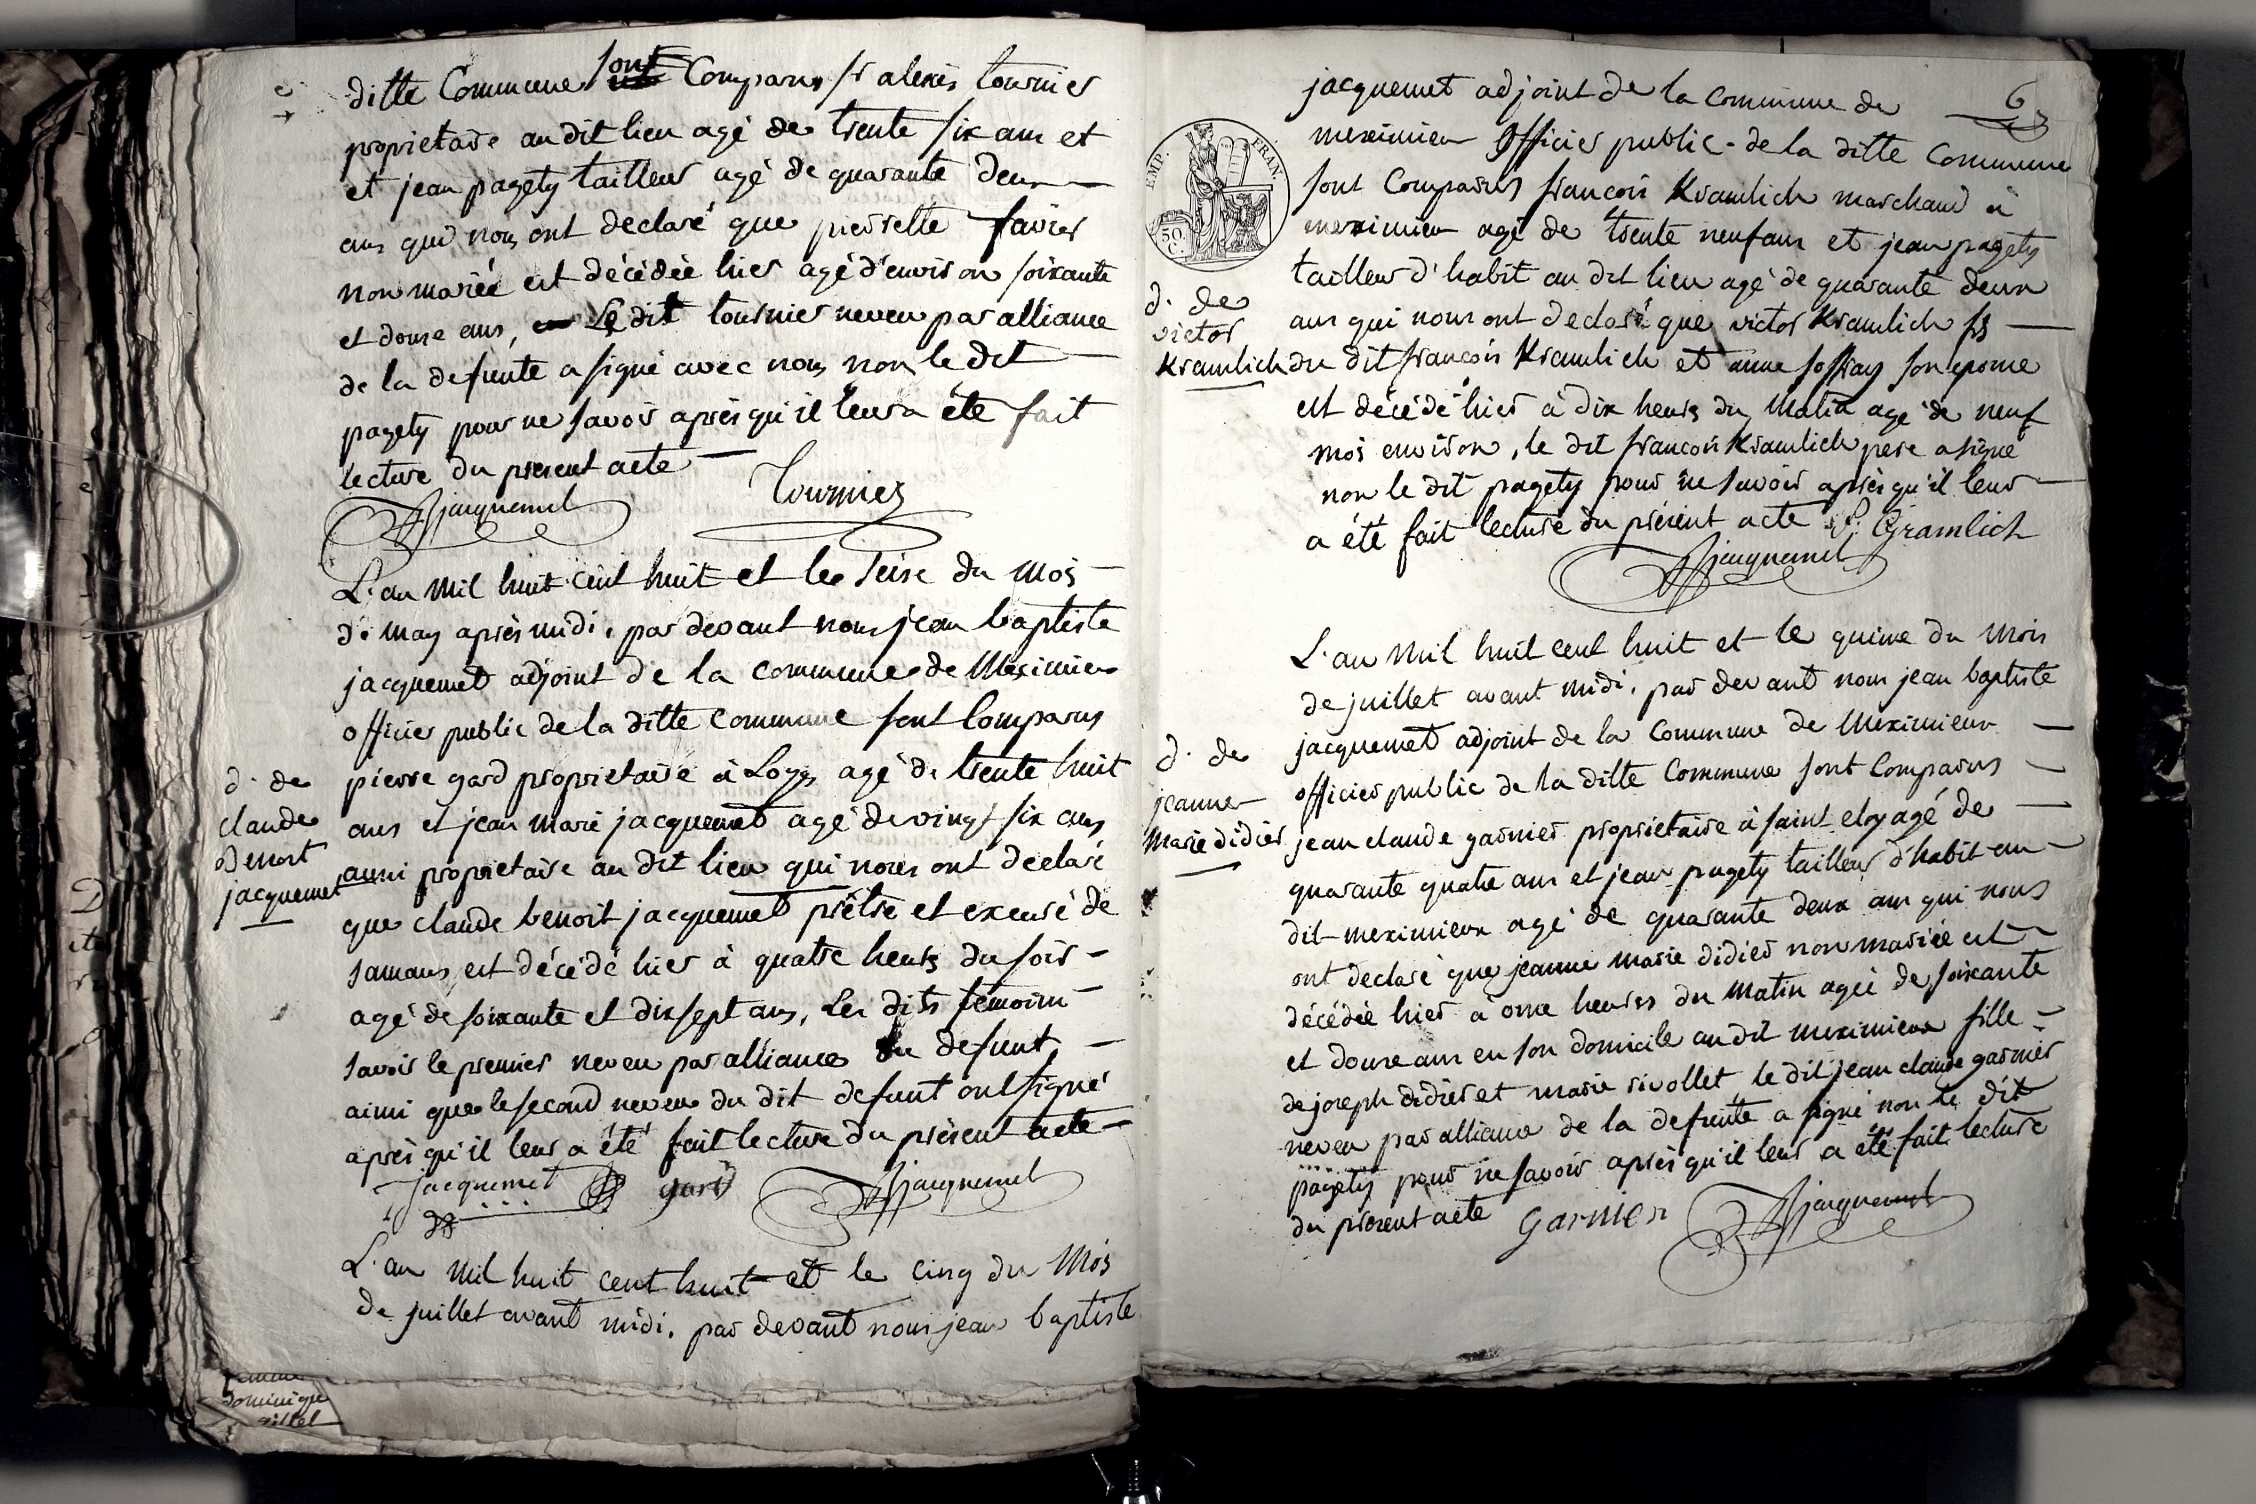 ditte Commune sont Comparus sr alexis tournier
proprietaire au dit lieu agé de trente six ans et
et jean pagety tailleur agé de quarante deux
ans qui nous ont declaré que pierrette favier
non mariée est décédée hier agé d'environ soixante
et douze ans, Le dit tournier neveu par alliance
de la defunte a signé avec nous non le dit
pagety pour ne savoir après qu'il leur a été fait
lecture du present acte
Jacquemet Tournier
L'an mil huit cent huit et le seize du mois
de may après midi, par devant nous jean baptiste
jacquemet adjoint de la commune de Meximieux
officier public de la ditte commune sont Comparus
pierre gard proprietaire à Loyes agé de trente huit
d. de
claude
Benoit
jacquemet
ans et jean marie jacquemet agé de vingt six ans
aussi proprietaire au dit lieu qui nous ont declaré
que claude benoit jacquemet prêtre et excuré de
samans est décédé hier à quatre heures du soir
agé de soixante et dix sept ans, Les dits témoins
savoir le premier neveu par alliance du defunt
ainsi que le second neveu du dit defunt ont signé
après qu'il leur a été fait lecture du présent acte
Jacquemet gard Jacquemet
L'an mil huit cent huit et le cinq du Mois
de juillet avant midi, par devant nous jean baptiste
dominique
6
jacquemet adjoint de la commune de
meximieux Officier public de la ditte Commune
EMP. FRAN.
50 C.
sont Comparus françois Kramlich marchand à
meximieux agé de trente neuf ans et jean pagety
tailleur d'habit au dit lieu agé de quarante deux
d. de
victor
Kramlich
ans qui nous ont declaré que victor Kramlich fs
du dit françois Kramlich et anne soffray son epouse
est décédé hier à dix heures du Matin agé de neuf
mois environ, le dit françois Kramlich pere a signé
non le dit pagety pour ne savoir après qu'il leur
a été fait lecture du présent acte f. Gramlich
Jacquemet
L'an mil huit cent huit et le quinze du Mois
de juillet avant midi, par devant nous jean baptiste
jacquemet adjoint de la Commune de Meximieux
officier public de la ditte Commune sont Comparus
d. de
jeanne
Marie didier
jean claude garnier proprietaire à saint eloy agé de
quarante quatre ans et jean pagety tailleur d'habit au
dit meximieux agé de quarante deux ans qui nous
ont declaré que jeanne marie didier non mariée est
décédée hier à onze heures du Matin agée de soixante
et douze ans en son domicile au dit meximieux fille
de joseph didier et marie rivollet le dit jean claude garnier
neveu par alliance de la defunte a signé non le dit
pagety pour ne savoir après qu'il leur a été fait lecture
du présent acte Garnier Jacquemet